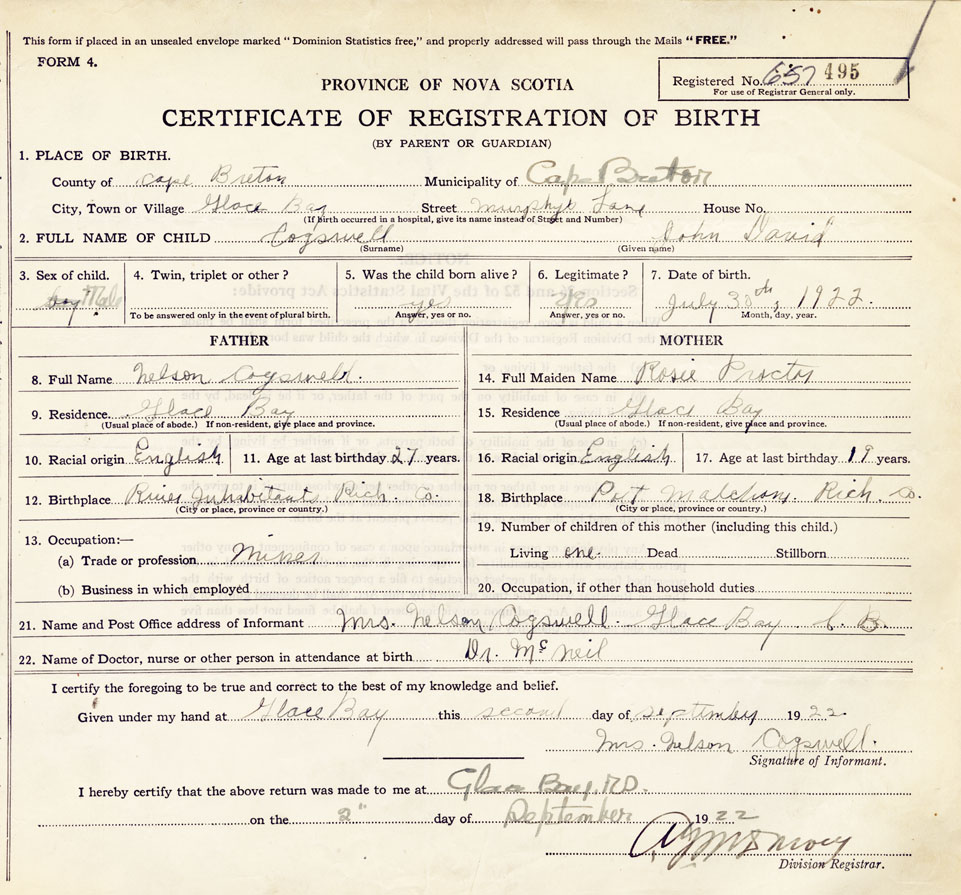 This form if placed in an unsealed envelope marked "Dominion Statistics free," and properly addressed will pass through the Mails "FREE."
FORM 4.
Registered No. 657 495
For use of Registrar General only.
PROVINCE OF NOVA SCOTIA
CERTIFICATE OF REGISTRATION OF BIRTH
(BY PARENT OR GUARDIAN)
1. PLACE OF BIRTH.
County of Cape Breton Municipality of Cape Breton
City, Town or Village Glace Bay Street Murphys Lane House No.
(If birth occurred in a hospital, give its name instead of Street and Number)
2. FULL NAME OF CHILD Cogswell John David
(Surname) (Given name)
3. Sex of child. 4. Twin, triplet or other? 5. Was the child born alive? 6. Legitimate? 7. Date of birth.
boy Male yes Yes July 30th, 1922.
To be answered only in the event of plural birth. Answer, yes or no. Answer, yes or no. Month, day, year.
FATHER MOTHER
8. Full Name Nelson Cogswell. 14. Full Maiden Name Rosie Proctor
9. Residence. Glace Bay 15. Residence Glace Bay
(Usual place of abode.) If non-resident, give place and province. (Usual place of abode.) If non-resident, give place and province.
10. Racial origin English 11. Age at last birthday 27 years. 16. Racial origin English 17. Age at last birthday 19 years.
12. Birthplace River Inhabitants Rich. Co. 18. Birthplace Port Malcolm. Rich. Co.
(City or place, province or country.) (City or place, province or country.)
19. Number of children of this mother (including this child.)
13. Occupation:—
(a) Trade or profession Miner Living one. Dead Stillborn
(b) Business in which employed 20. Occupation, if other than household duties
21. Name and Post Office address of Informant Mrs. Nelson Cogswell. Glace Bay C. B.
22. Name of Doctor, nurse or other person in attendance at birth Dr. McNeil
I certify the foregoing to be true and correct to the best of my knowledge and belief.
Given under my hand at Glace Bay this second day of September 1922.
Mrs. Nelson Cogswell.
Signature of Informant.
I hereby certify that the above return was made to me at Glace Bay. RD.
on the 2" day of September 1922
Division Registrar.